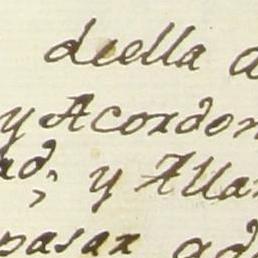 deella a
y Acordon
ad; y Alla
pasar ad